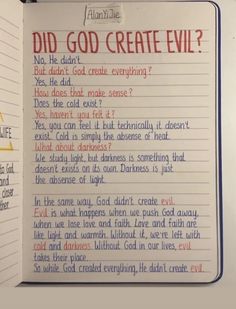 AlanYiJie
DID GOD CREATE EVIL?
No, He didn't.
But didn't God create everything?
Yes, He did.
How does that make sense?
Does the cold exist?
Yes, haven't you felt it?
Yes, you can feel it but technically, it doesn't
exist. Cold is simply the absense of heat.
What about darkness?
We study light, but darkness is something that
doesn't exists on its own. Darkness is just
the absense of light.
In the same way, God didn't create evil.
Evil is what happens when we push God away,
when we lose love and faith. Love and faith
are like light and warmth. Without it, we're left with
cold and darkness. Without God in our lives, evil
takes their place.
So while God created everything, He didn't create evil.
LIFE
God,
and
closer